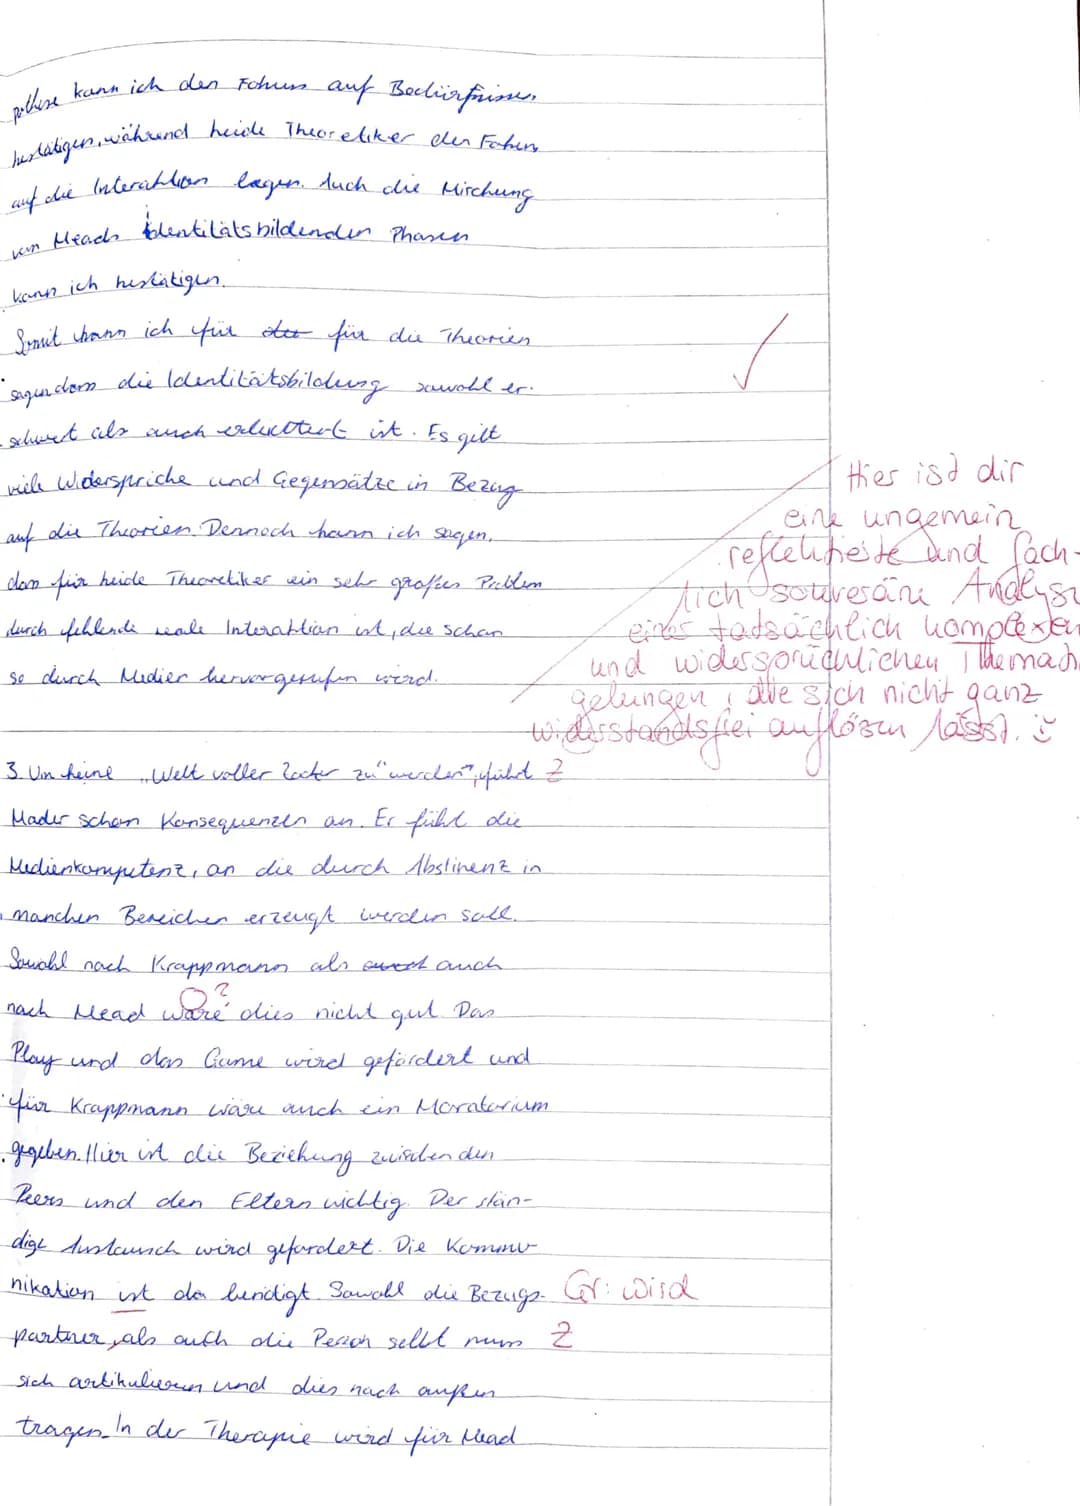 pothese kann ich den Fokus auf Bedürfnisse
bestätigen, während beide Theoretiker den Fokus
auf die Interaktion legen. Auch die Mischung
von Meads identitätsbildenden Phasen
kann ich bestätigen.
Somit kann ich für für die Theorien
sagen dass die Identitätsbildung sowohl er-
schwert als auch erleichtert ist. Es gilt
viele Widerspriche und Gegensätze in Bezug
auf die Theorien. Dennoch kann ich sagen,
dass für beide Theoretiker ein sehr großes Problem
durch fehlende reale Interaktion ist, die schon
so durch Medien hervorgerufen wird.
Hier ist dir
eine ungemein
reflektierte und fach-
lich souveräne Analyse
eines tatsächlich komplexen
und widersprüchlichen Themas
gelungen, die sich nicht ganz
widerstandsfrei auflösen lässt. :)
3. Um keine „Welt voller Zocker zu" werden", führt Z
Mader schon Konsequenzen an. Er führt die
Medienkompetenz, an die durch Abstinenz in
manchen Bereichen erzeugt werden soll.
Sowohl nach Krappmann als auch
nach Mead wäre dies nicht gut. Das ?
Play und das Game wird gefördert und
für Krappmann wäre auch ein Moratorium
gegeben. Hier ist die Beziehung zwischen den
Peers und den Eltern wichtig. Der stän-
dige Austausch wird gefordert. Die Kommu-
nikation ist da benötigt. Sowohl die Bezugs- Gr: wird
partner, als auch die Person selbt muss Z
sich artikulieren und dies nach außen
tragen. In der Therapie wird für Mead